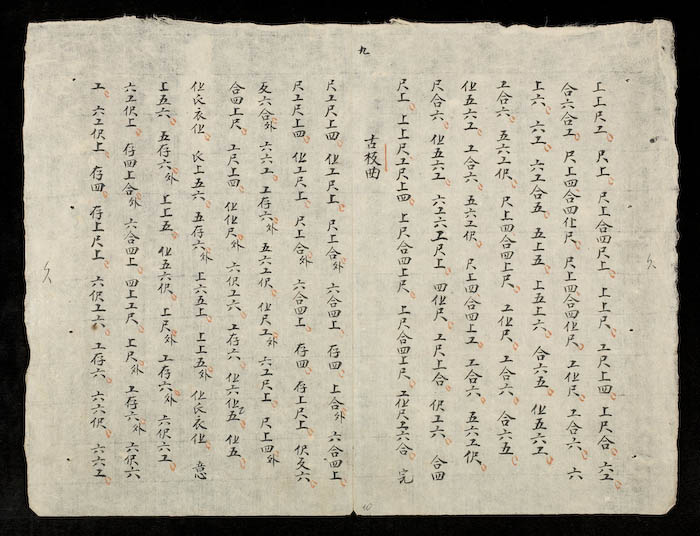 九
上上尺工 尺上 尺上合四尺上 上上尺 工尺上四 上尺合 六工
合六合工 尺上四合四仩尺 尺上四合四仩尺 工仩尺 工合六 六
上六 六工 六工合五 五上五 上五上六 合六五 仩五六工
工合六 五六工伬 尺上四合四上尺 工仩尺 工合六 合六五
仩五六工 工合六 五六工伬 尺上四合四上工 工合六 五六工伬
尺合六 仩五六工 六工六工尺上 四仩尺 工尺上合 伬工六 合四
尺上 上上尺工尺上四 上尺合四上尺 上尺合四上尺 工仩尺工六合 完
古枝曲
尺工尺上四 仩工尺上 尺上合外 六合四上 存四 上合外 六合四上
尺工尺上四 仩工尺上 尺上合外 六合四上 存四 存上尺上 伬㐅六
㐅六合外 六六工 工存六外 五六工伬 仩尺工外 六工尺上 尺上四外
合四上尺 工尺上四 仩仩尺外 六伬工六 工存六 仩六仩五 仩五
仩氏衣仩 氏上五六 五存六外 上六五上 上上五外 仩氏衣仩 意
上五六 五存六外 上上五 仩五六伬 上尺外 工存六外 六伬六工
六工伬上 存四上合外 六合四上 四上工尺 上尺外 工存六外 六伬六
工 六工伬上 存四 存上尺上 六伬工六 工存六 六六伬 六六工
10